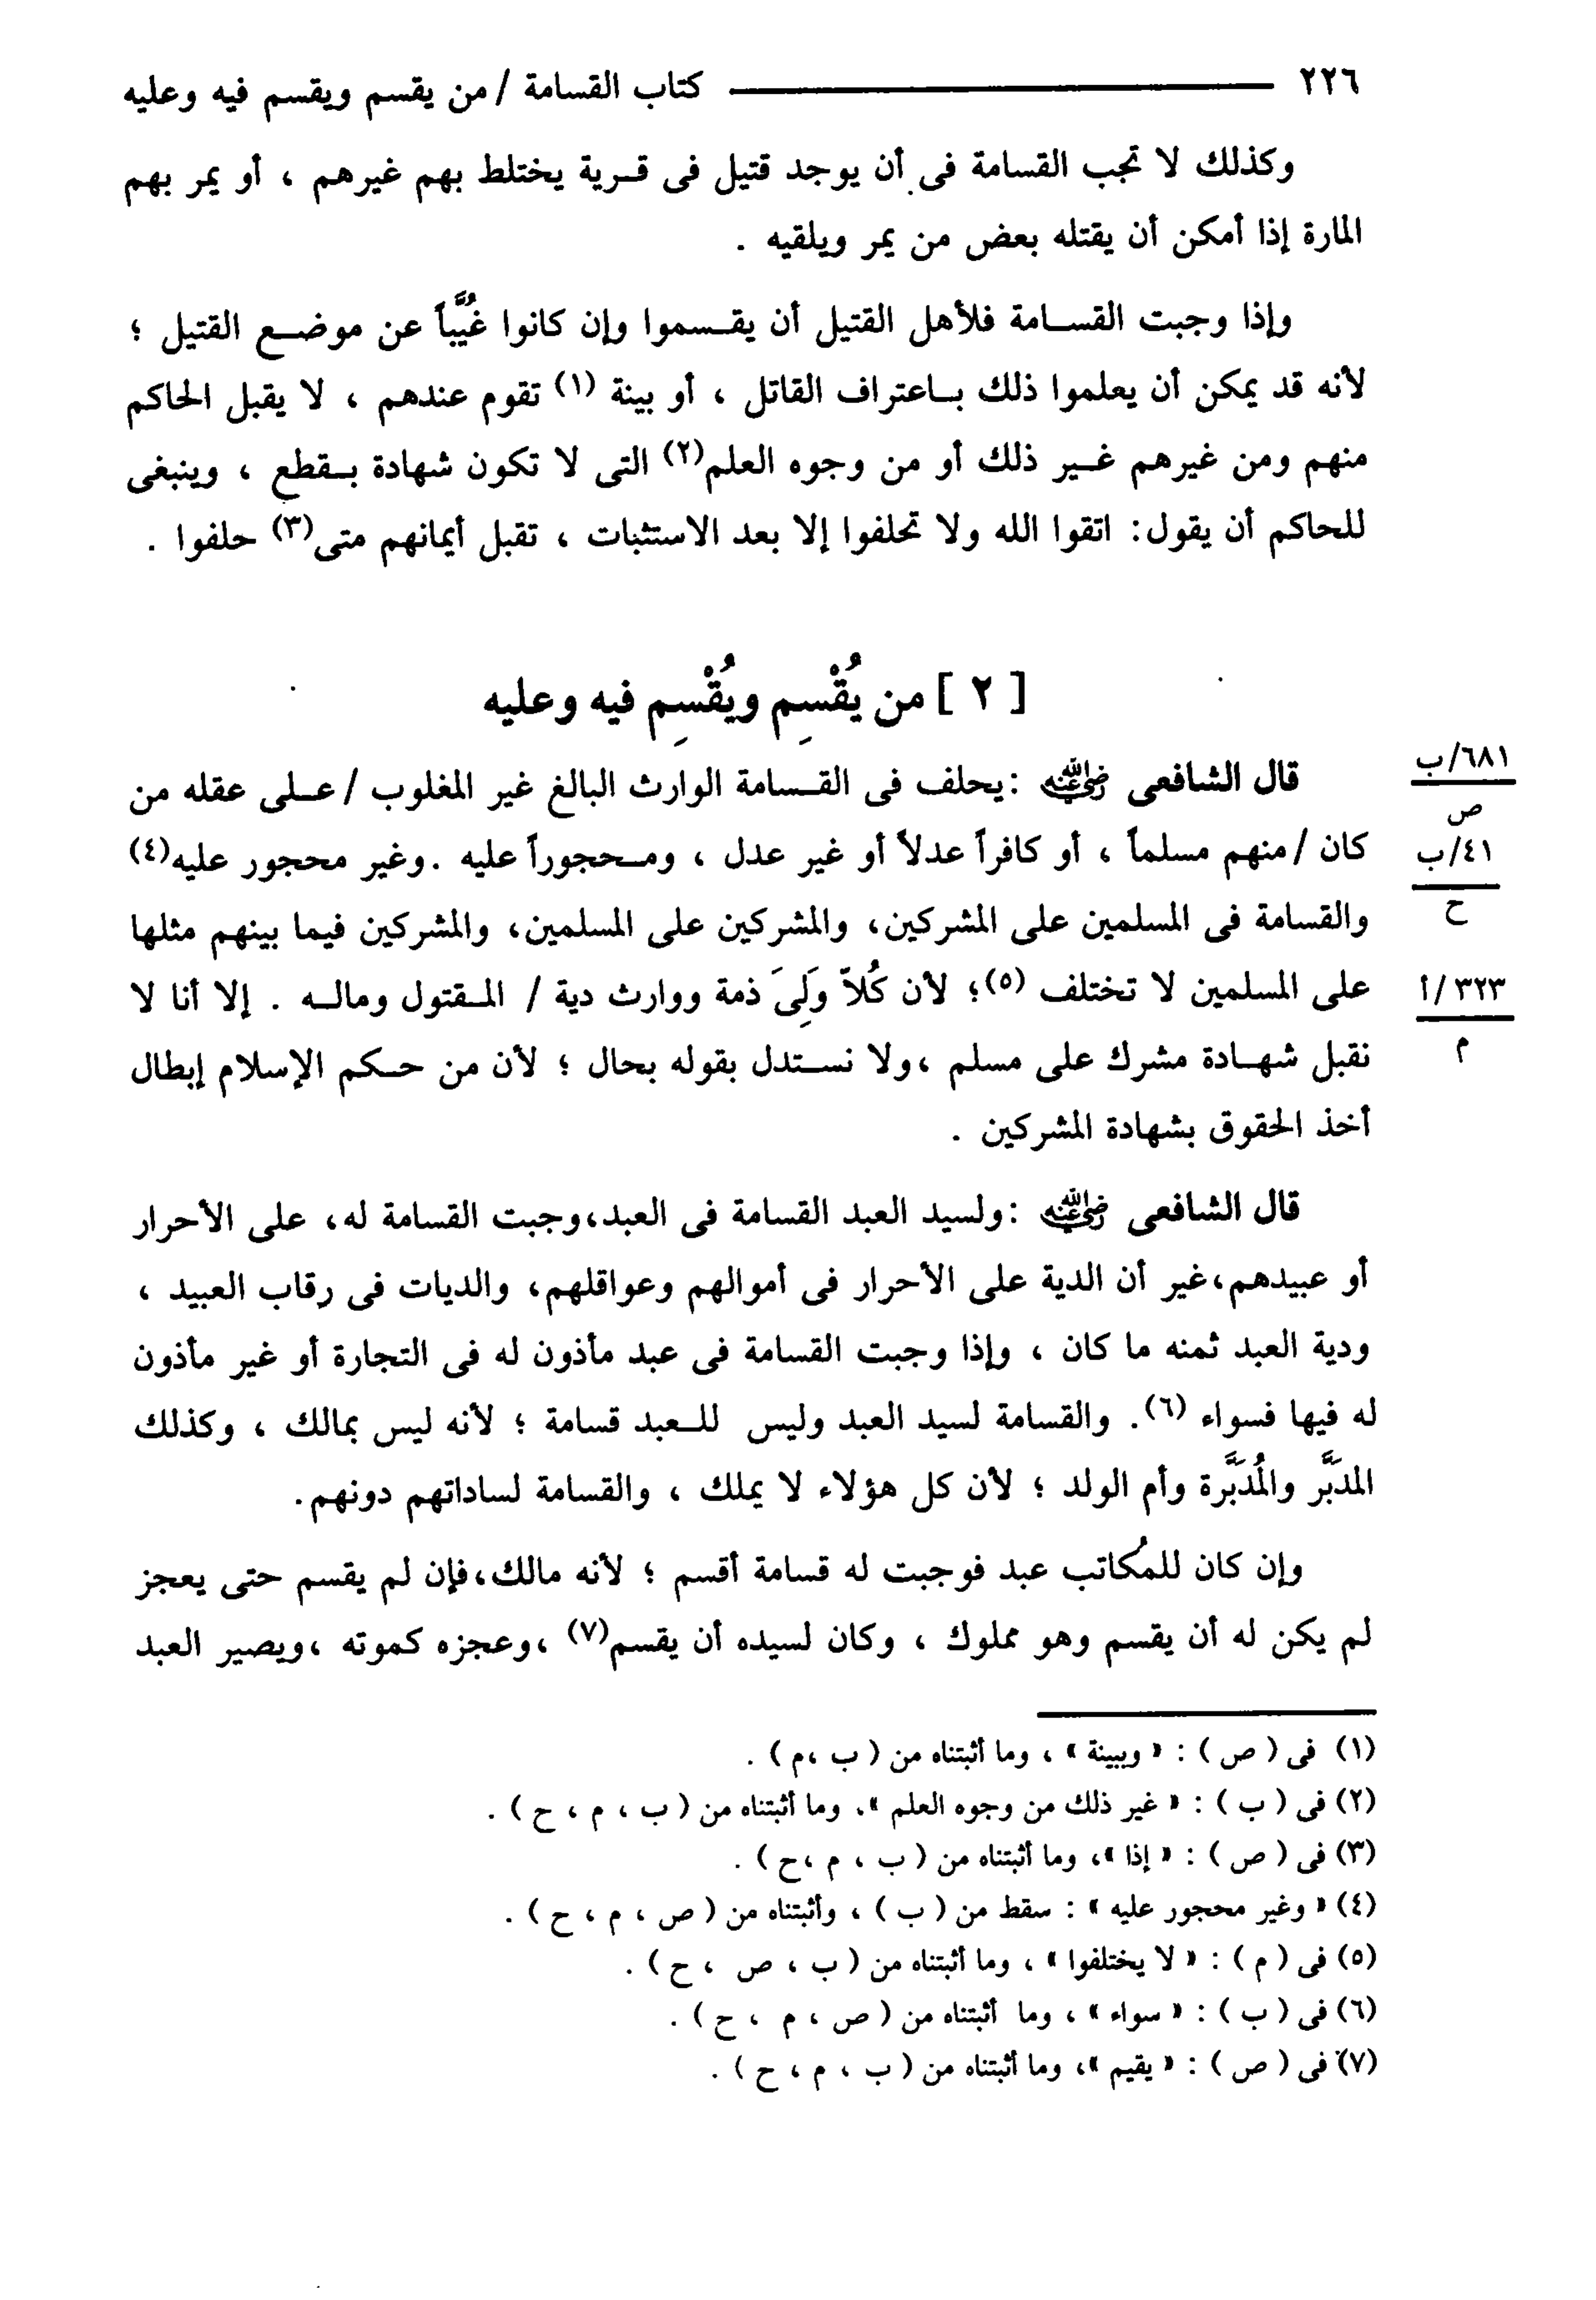 ٢٢٦ كتاب القسامة / من يقسم ويقسم فيه وعليه
وكذلك لا تجب القسامة فى أن يوجد قتيل فى قرية يختلط بهم غيرهم ، أو يمر بهم
المارة إذا أمكن أن يقتله بعض من يمر ويلقيه .
وإذا وجبت القسامة فلأهل القتيل أن يقسموا وإن كانوا غُيَّباً عن موضع القتيل ؛
لأنه قد يمكن أن يعلموا ذلك باعتراف القاتل ، أو بينة (١) تقوم عندهم ، لا يقبل الحاكم
منهم ومن غيرهم غير ذلك أو من وجوه العلم(٢) التى لا تكون شهادة بقطع ، وينبغى
للحاكم أن يقول: اتقوا الله ولا تحلفوا إلا بعد الاستثبات ، تقبل أيمانهم متى(٣) حلفوا .
[ ٢ ] من يُقْسِم ويُقْسِم فيه وعليه
قال الشافعى رضي الله عنه : يحلف فى القسامة الوارث البالغ غير المغلوب / على عقله من
٦٨١/ب
ص
كان / منهم مسلماً ، أو كافراً عدلاً أو غير عدل ، ومحجوراً عليه .وغير محجور عليه(٤)
٤١/ب
ح
والقسامة فى المسلمين على المشركين، والمشركين على المسلمين، والمشركين فيما بينهم مثلها
على المسلمين لا تختلف (٥)؛ لأن كُلاّ وَلِىَ ذمة ووارث دية / المقتول وماله . إلا أنا لا
٣٢٣/أ
م
نقبل شهادة مشرك على مسلم ،ولا نستدل بقوله بحال ؛ لأن من حكم الإسلام إبطال
أخذ الحقوق بشهادة المشركين .
قال الشافعى رضي الله عنه : ولسيد العبد القسامة فى العبد،وجبت القسامة له، على الأحرار
أو عبيدهم،غير أن الدية على الأحرار فى أموالهم وعواقلهم، والديات فى رقاب العبيد ،
ودية العبد ثمنه ما كان ، وإذا وجبت القسامة فى عبد مأذون له فى التجارة أو غير مأذون
له فيها فسواء (٦). والقسامة لسيد العبد وليس للعبد قسامة ؛ لأنه ليس بمالك ، وكذلك
المدَبَّر والمُدَبَّرة وأم الولد ؛ لأن كل هؤلاء لا يملك ، والقسامة لساداتهم دونهم.
وإن كان للمُكاتب عبد فوجبت له قسامة أقسم ؛ لأنه مالك،فإن لم يقسم حتى يعجز
لم يكن له أن يقسم وهو مملوك ، وكان لسيده أن يقسم(٧) ،وعجزه كموته ،ويصير العبد
(١) فى ( ص ) : « وببينة » ، وما أثبتناه من ( ب ،م ) .
(٢) فى ( ب ) : « غير ذلك من وجوه العلم »، وما أثبتناه من ( ب ، م ، ح ) .
(٣) فى ( ص ) : « إذا »، وما أثبتناه من ( ب ، م ،ح ) .
(٤) « وغير محجور عليه » : سقط من ( ب ) ، وأثبتناه من ( ص ، م ، ح ) .
(٥) فى ( م ) : « لا يختلفوا » ، وما أثبتناه من ( ب ، ص ، ح ) .
(٦) فى ( ب ) : « سواء » ، وما أثبتناه من ( ص ، م ، ح ) .
(٧) فى ( ص ) : « يقيم »، وما أثبتناه من ( ب ، م ، ح ) .